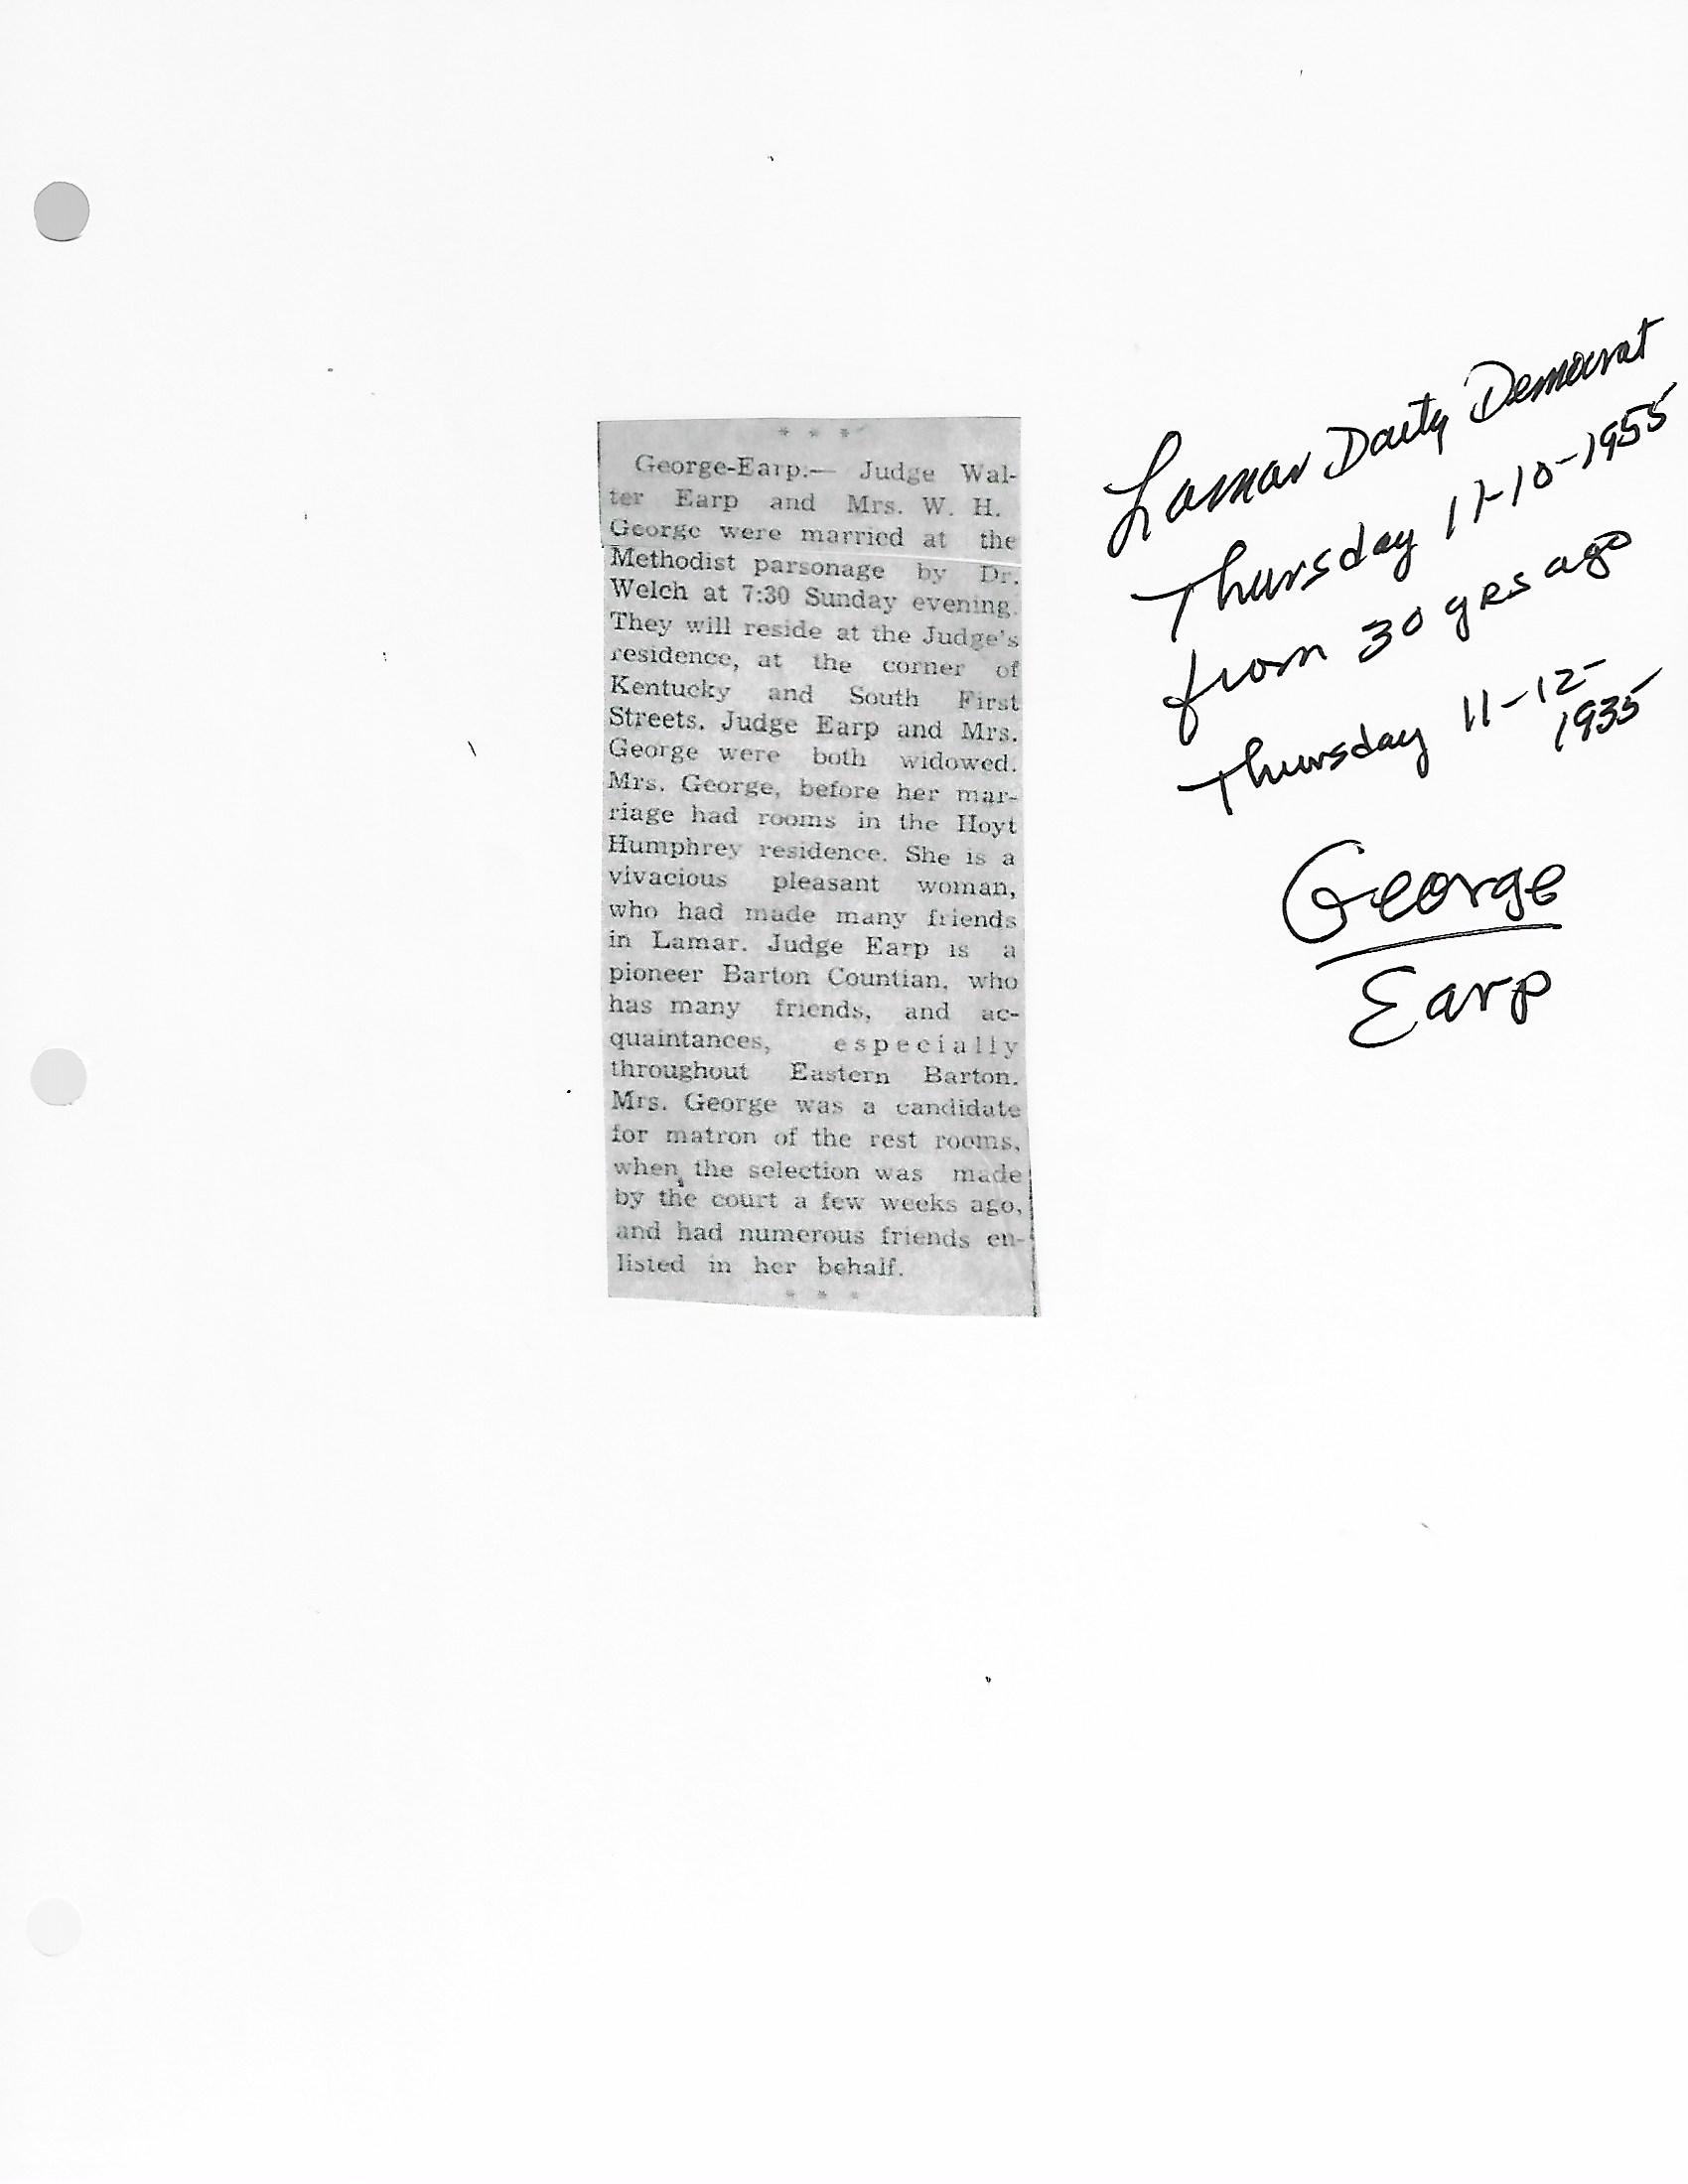 * * *
George-Earp.— Judge Wal-
ter Earp and Mrs. W. H.
George were married at the
Methodist parsonage by Dr.
Welch at 7:30 Sunday evening.
They will reside at the Judge's
residence, at the corner of
Kentucky and South First
Streets. Judge Earp and Mrs.
George were both widowed.
Mrs. George, before her mar-
riage had rooms in the Hoyt
Humphrey residence. She is a
vivacious pleasant woman,
who had made many friends
in Lamar. Judge Earp is a
pioneer Barton Countian, who
has many friends, and ac-
quaintances, especially
throughout Eastern Barton.
Mrs. George was a candidate
for matron of the rest rooms,
when the selection was made
by the court a few weeks ago,
and had numerous friends en-
listed in her behalf.
* * *
Lamar Daily Democrat
Thursday 11-10-1955
from 30 yrs ago
Thursday 11-12-
1935
George
Earp